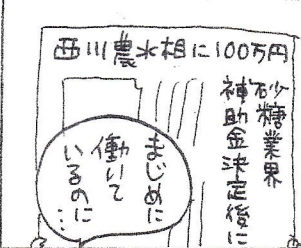 西川農水相に100万円
砂糖業界
補助金決定後に
まじめに
働いて
いるのに
…